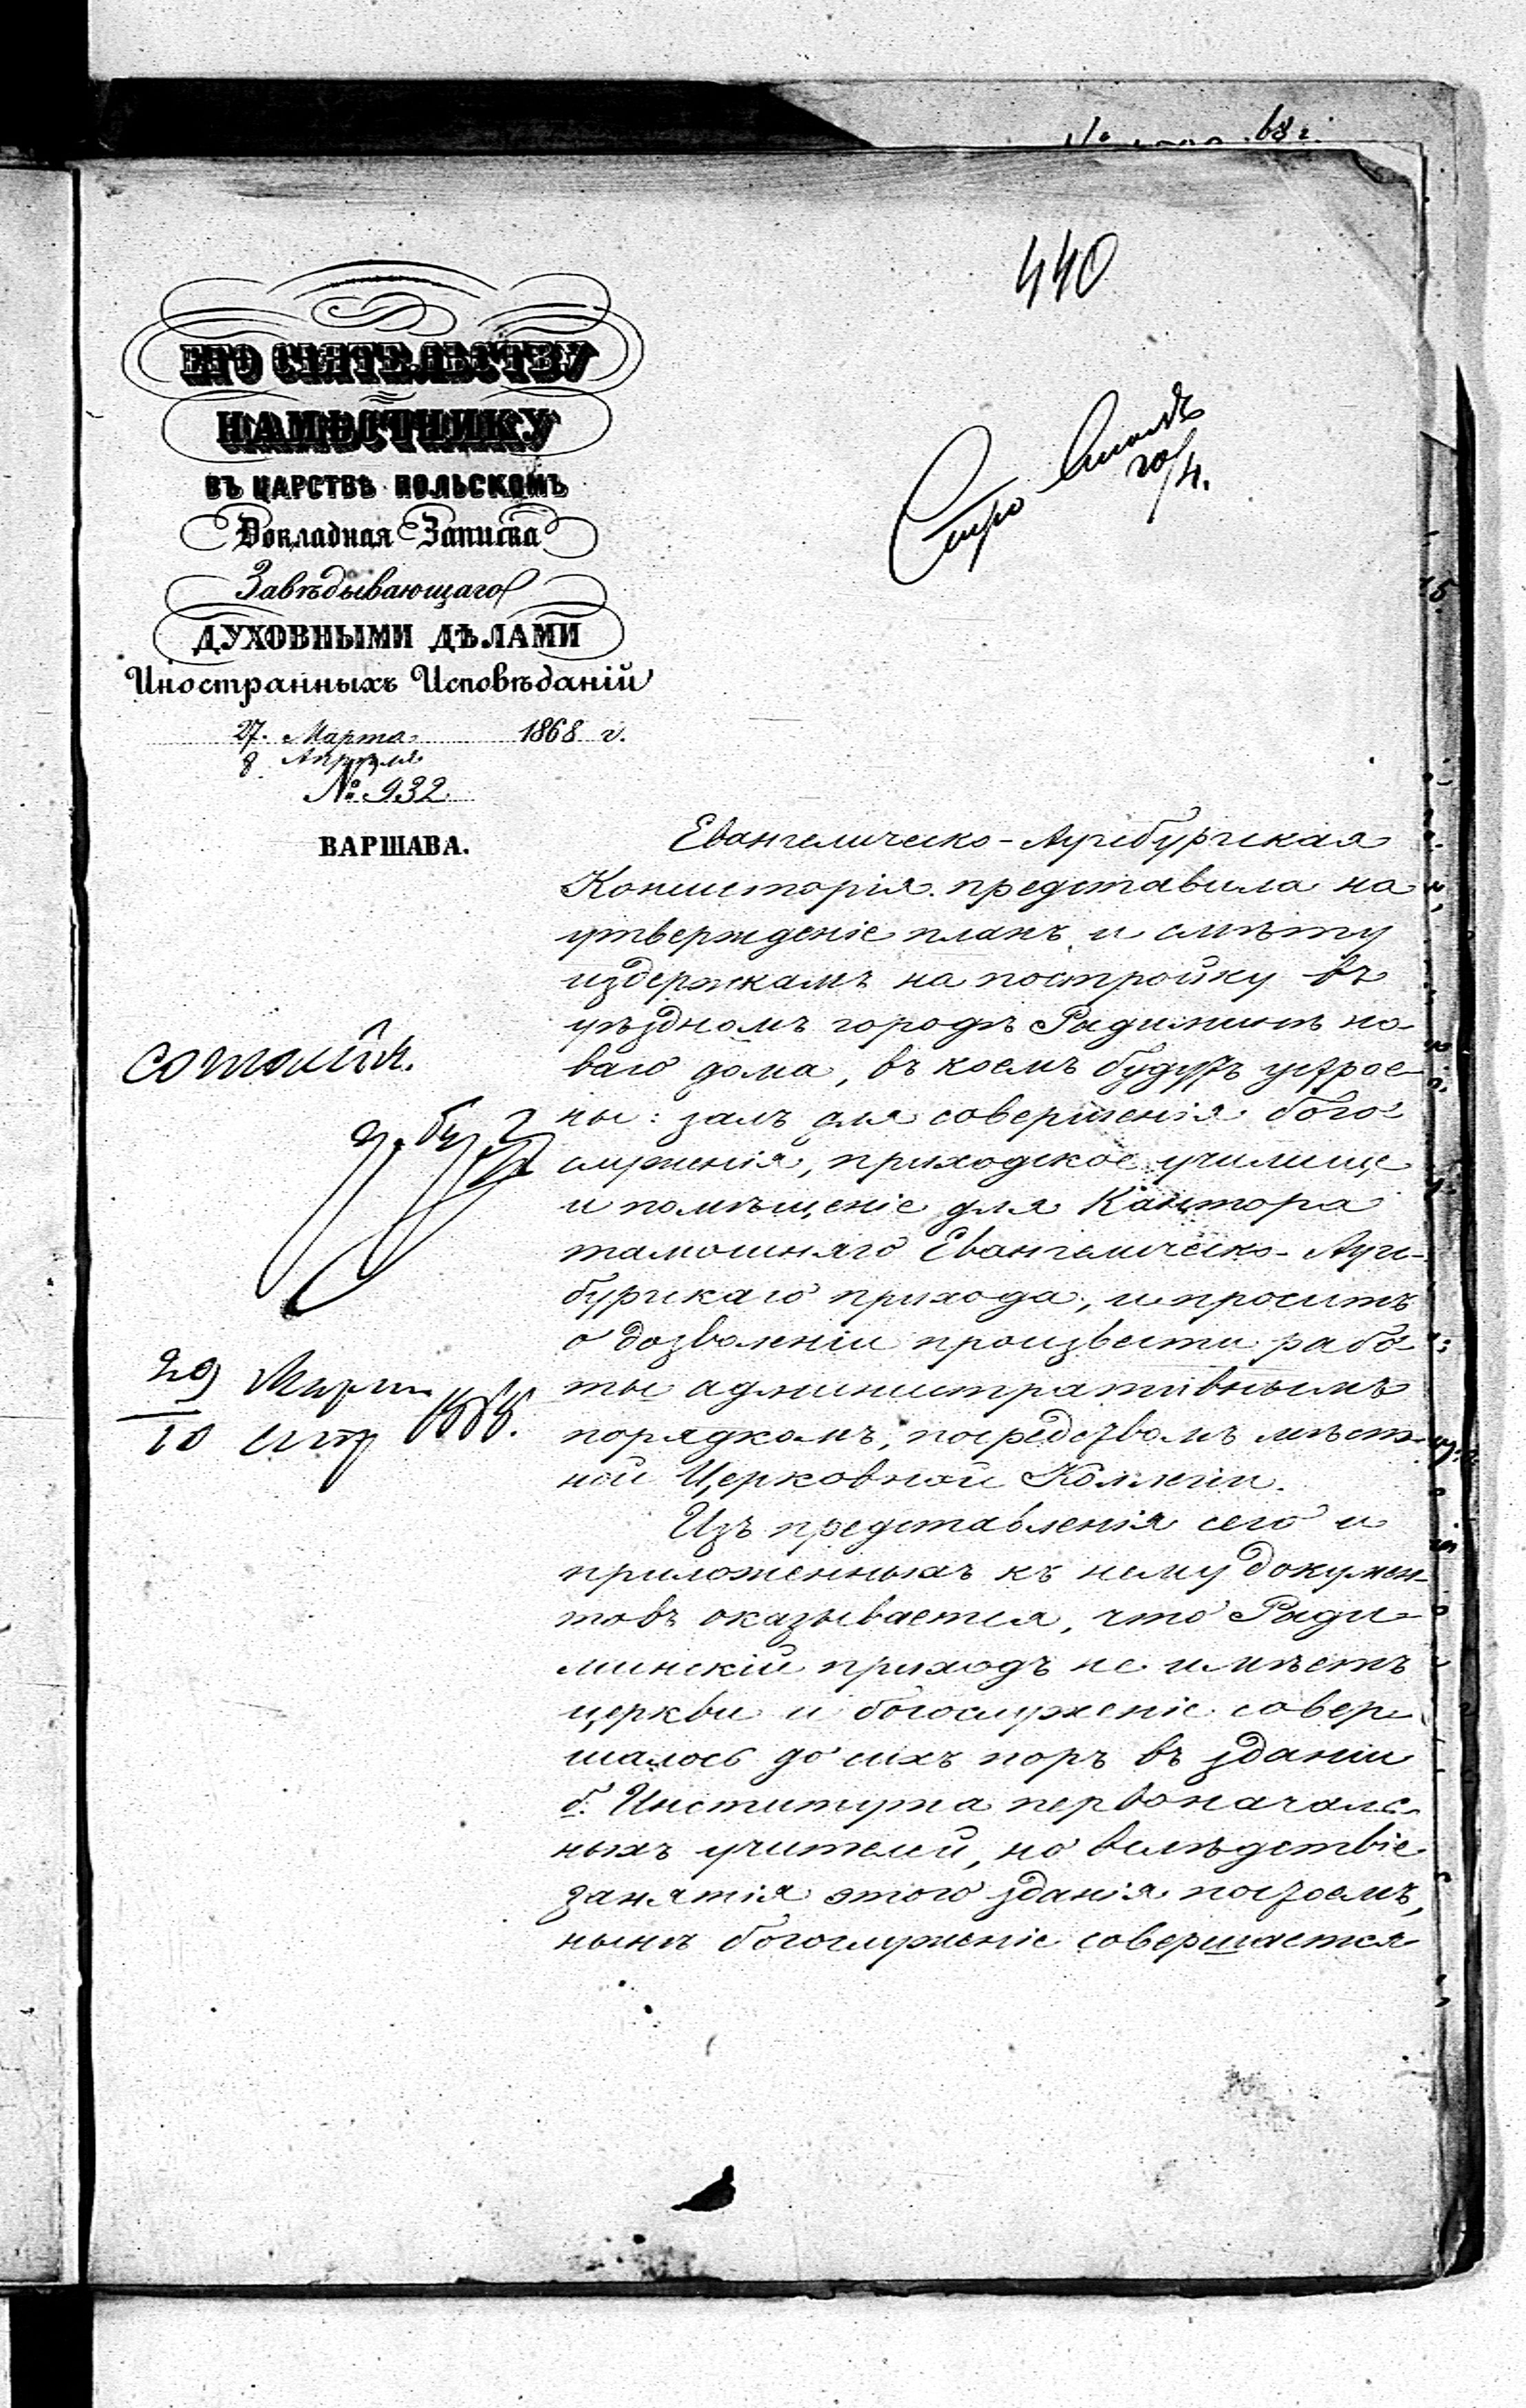 68 г.
440
ЕГО СІЯТЕЛЬСТВУ
НАМѢСТНИКУ
ВЪ ЦАРСТВѢ ПОЛЬСКОМЪ
Докладная Записка
Завѣдывающаго
ДУХОВНЫМИ ДѢЛАМИ
Иностранныхъ Исповѣданій
27. Марта 1868 г.
8 Апрѣля
№ 932
ВАРШАВА.
20/4.
Евангелическо-Аугсбургская
Консисторія представила на
утвержденіе планъ и смѣту
издержкамъ на постройку въ
уѣздномъ городѣ Радиминѣ но-
ваго дома, въ коемъ будутъ устрое-
ны: залъ для совершенія бого-
служенія, приходское училище
и помѣщеніе для Кантора
тамошняго Евангелическо-Аугс-
бургскаго прихода, и проситъ
о дозволеніи произвести рабо-
ты административнымъ
порядкомъ, посредствомъ мѣст-
ной Церковной Коллегіи.
Изъ представленія сего и
приложенныхъ къ нему докумен-
товъ оказывается, что Ради-
минскій приходъ не имѣетъ
церкви и богослуженіе совер-
шалось до сихъ поръ въ зданіи
б. Института первоначаль-
ныхъ учителей, но вслѣдствіе
занятія этого зданія постоемъ,
нынѣ богослуженіе совершается
29 Марта
10 Апр 1868.